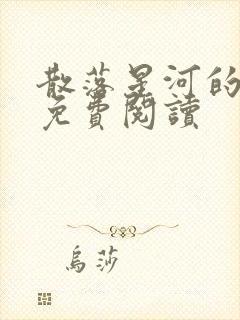 散落星河的
免費閱讀
烏莎